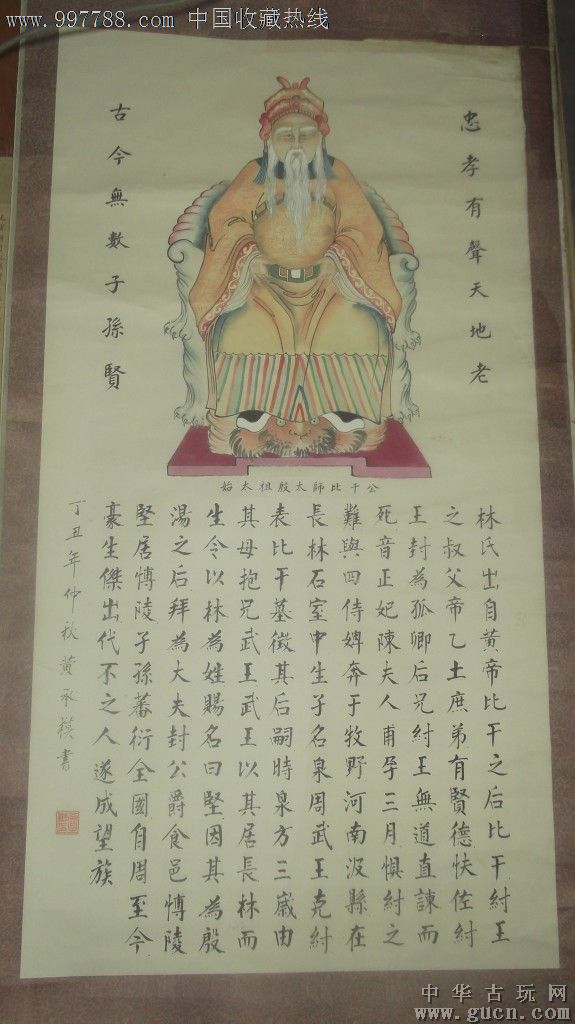 www.997788.com 中国收藏热线
忠孝有聲天地老
古今無數子孫賢
始太祖殷太師比干公
林氏出自黄帝比干之后比干紂王
之叔父帝乙土庶弟有賢德怏佐紂
王封為孤卿后兄紂王無道直諫而
死音正妃陳夫人甫孕三月惧紂之
難與四侍婢奔于牧野河南汲縣在
長林石室中生子名泉周武王克紂
表比干墓徵其后嗣時泉方三歲由
其母抱兄武王武王以其居長林而
生令以林為姓賜名曰堅因其為殷
湯之后拜為大夫封公爵食邑博陵
堅居博陵子孫蕃衍全國自周至今
豪生傑出代不之人遂成望族
丁丑年仲秋黄承模書
中华古玩网
www.gucn.com